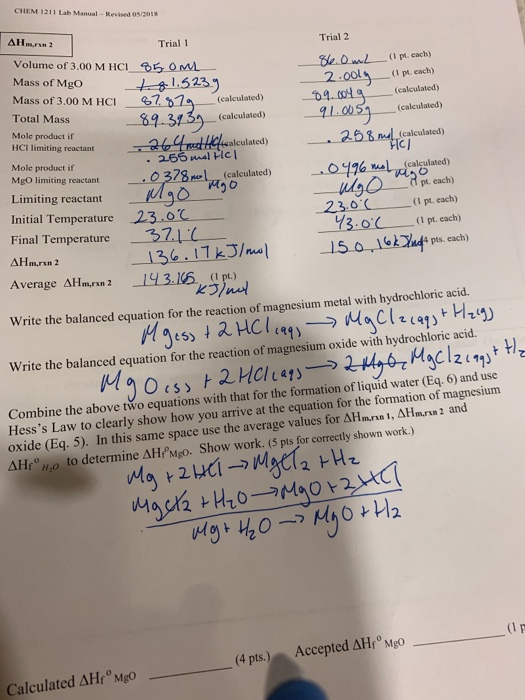 CHEM 1211 Lab Manual - Revised 05/2018
ΔHm,rxn 2 Trial 1 Trial 2
Volume of 3.00 M HCl 85.0mL 86.0mL (1 pt. each)
Mass of MgO 1.523g 2.001g (1 pt. each)
Mass of 3.00 M HCl 87.87g (calculated) 89.004g (calculated)
Total Mass 89.393g (calculated) 91.005g (calculated)
Mole product if
HCl limiting reactant .255 mol HCl (calculated) .258 mol HCl (calculated)
Mole product if
MgO limiting reactant .0378 mol MgO (calculated) .0496 mol MgO (calculated)
Limiting reactant MgO MgO (1 pt. each)
Initial Temperature 23.0°C 23.0°C (1 pt. each)
Final Temperature 37.1°C 43.0°C (1 pt. each)
ΔHm,rxn 2 136.17 kJ/mol 150.16kJ/mol (4 pts. each)
Average ΔHm,rxn 2 143.165 kJ/mol (1 pt.)
Write the balanced equation for the reaction of magnesium metal with hydrochloric acid.
Mg(s) + 2HCl(aq) → MgCl2(aq) + H2(g)
Write the balanced equation for the reaction of magnesium oxide with hydrochloric acid.
MgO(s) + 2HCl(aq) → MgCl2(aq) + H2
Combine the above two equations with that for the formation of liquid water (Eq. 6) and use
Hess's Law to clearly show how you arrive at the equation for the formation of magnesium
oxide (Eq. 5). In this same space use the average values for ΔHm,rxn 1, ΔHm,rxn 2 and
ΔHf° H2O to determine ΔHf° MgO. Show work. (5 pts for correctly shown work.)
Mg + 2HCl → MgCl2 + H2
MgCl2 + H2O → MgO + 2HCl
Mg + H2O → MgO + H2
Calculated ΔHf° MgO (4 pts.) Accepted ΔHf° MgO (1 p